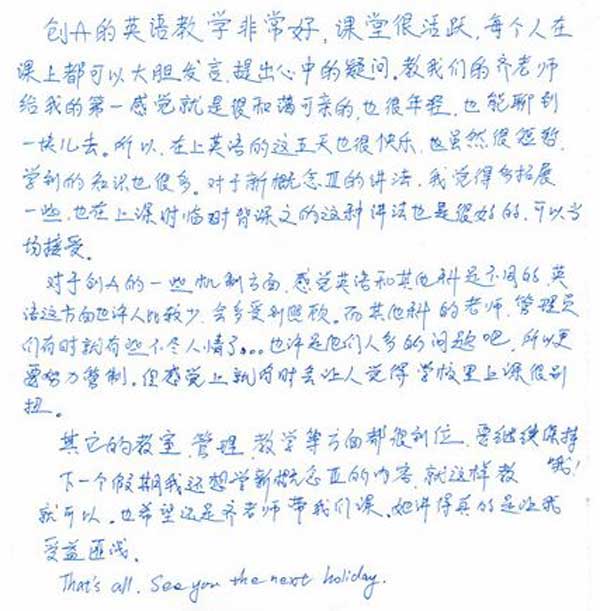 创A的英语教学非常好，课堂很活跃，每个人在
课上都可以大胆发言，提出心中的疑问。教我们的齐老师
给我的第一感觉就是很和蔼可亲的，也很年轻，也能聊到
一块儿去。所以，在上英语的这五天也很快乐，也虽然很短暂，
学到的知识也很多。对于新概念Ⅲ的讲法，我觉得多拓展
一些，也在上课时临时背课文的这种讲法也是很好的，可以当
场接受。
对于创A的一些机制方面，感觉英语和其他科是不同的，英
语这方面也许人比较少，会多受到照顾。而其他科的老师、管理员
们有时就有些不尽人情了。。。也许是他们人多的问题吧，所以更
要努力管制。但感觉上就有时会让人觉得学校里上课很别
扭。
其它的教室、管理、教学等方面都很到位，要继续保持
哦！
下一个假期我还想学新概念Ⅲ的内容，就这样教
就可以。也希望还是齐老师带我们课，她讲得真的是让我
受益匪浅。
That's all. See you the next holiday.